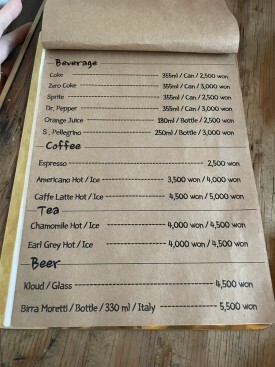 Beverage
Coke ---------------------- 355ml / Can / 2,500 won
Zero Coke ---------------------- 355ml / Can / 3,000 won
Sprite ---------------------- 355ml / Can / 2,500 won
Dr. Pepper ---------------------- 355ml / Can / 3,000 won
Orange Juice ---------------------- 180ml / Bottle / 2,500 won
S. Pellegrino ---------------------- 250ml / Bottle / 3,000 won
Coffee
Espresso ---------------------- 2,500 won
Americano Hot / Ice ---------------------- 3,500 won / 4,000 won
Caffe Latte Hot / Ice ---------------------- 4,500 won / 5,000 won
Tea
Chamomile Hot / Ice ---------------------- 4,000 won / 4,500 won
Earl Grey Hot / Ice ---------------------- 4,000 won / 4,500 won
Beer
Kloud / Glass ---------------------- 4,500 won
Birra Moretti / Bottle / 330 ml / Italy ---------------------- 5,500 won